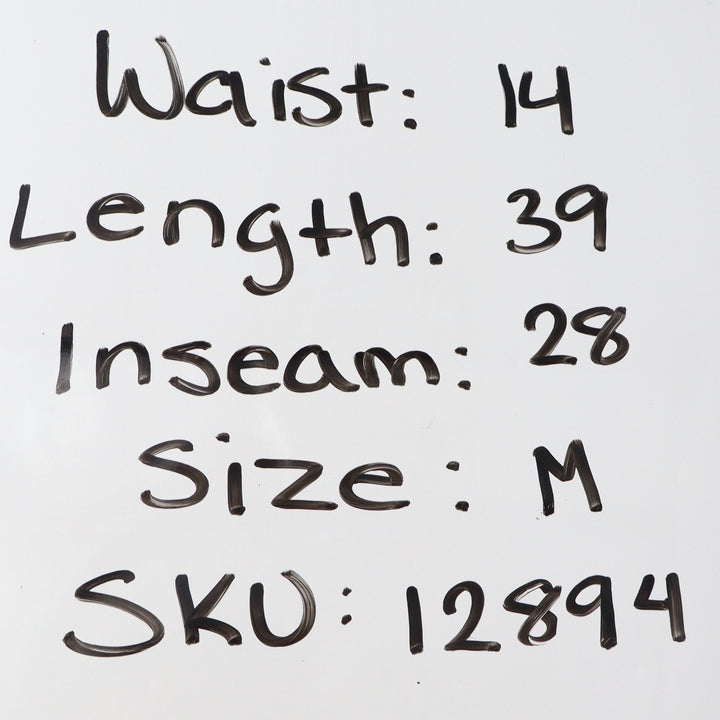 Waist: 14
Length: 39
Inseam: 28
Size: M
SKU: 12894